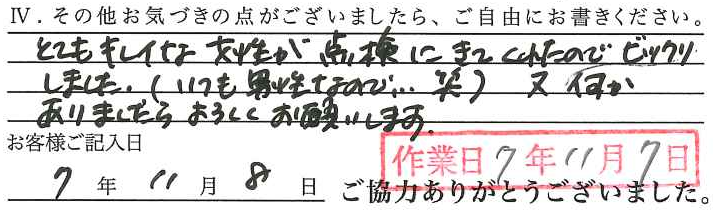 Ⅳ.その他お気づきの点がございましたら、ご自由にお書きください。
とてもキレイな女性が点検にきてくれたのでビックリ
しました.(いつも男性なので…笑) 又何か
ありましたらよろしくお願いします.
お客様ご記入日
7年11月8日
作業日7年11月7日
ご協力ありがとうございました。